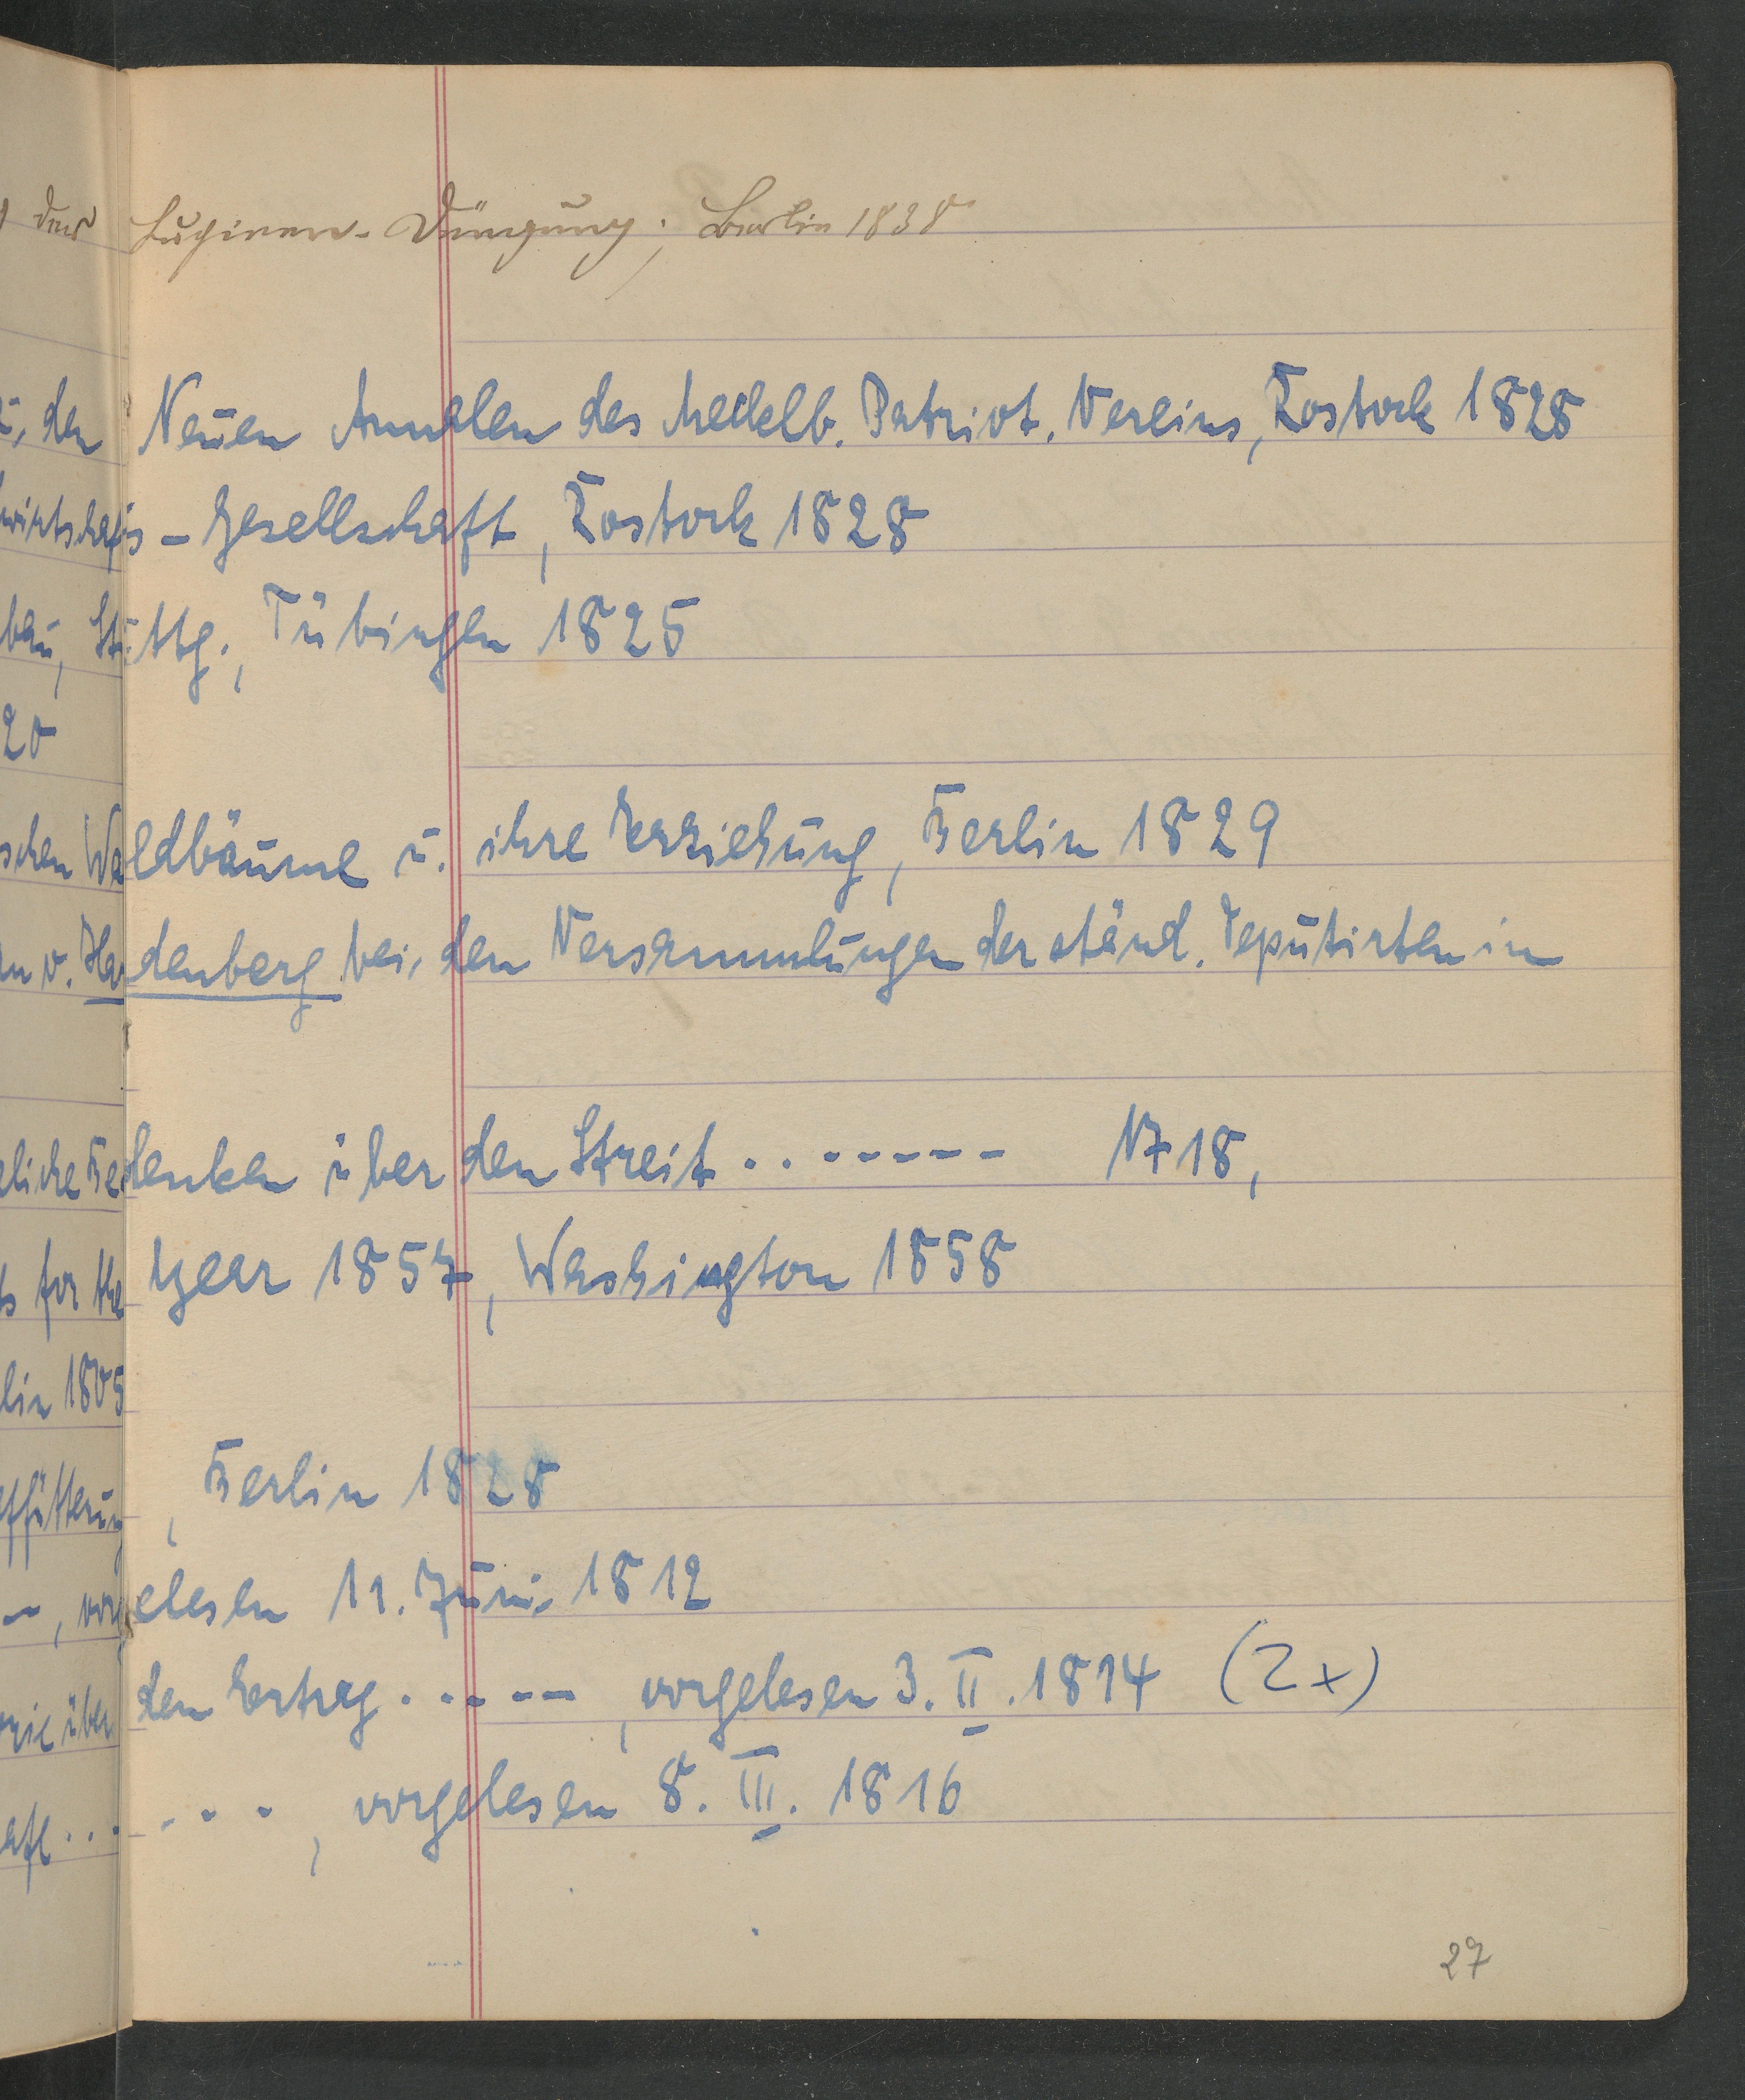 der Lupinen-Düngung; Berlin 1838
u. den Neuen Annalen des Mecklb. Patriot. Vereins, Rostock 1828
wirtschafts-Gesellschaft, Rostock 1828
bau, Stuttg., Tübingen 1825
20
schen Waldbäume u. ihre Erziehung, Berlin 1829
v. Hardenberg bei den Versammlungen der ständ. Deputirten in
liche Bedenken über den Streit . . - - - - - 1718,
for the year 1857, Washington 1858
lin 1805
fütterung, Berlin 1828
–, vorgelesen 11. Juni 1812
rie über den Ertrag . . - - -, vorgelesen 3. II. 1814 (2x)
. . . . . ., vorgelesen 8. III. 1816
27